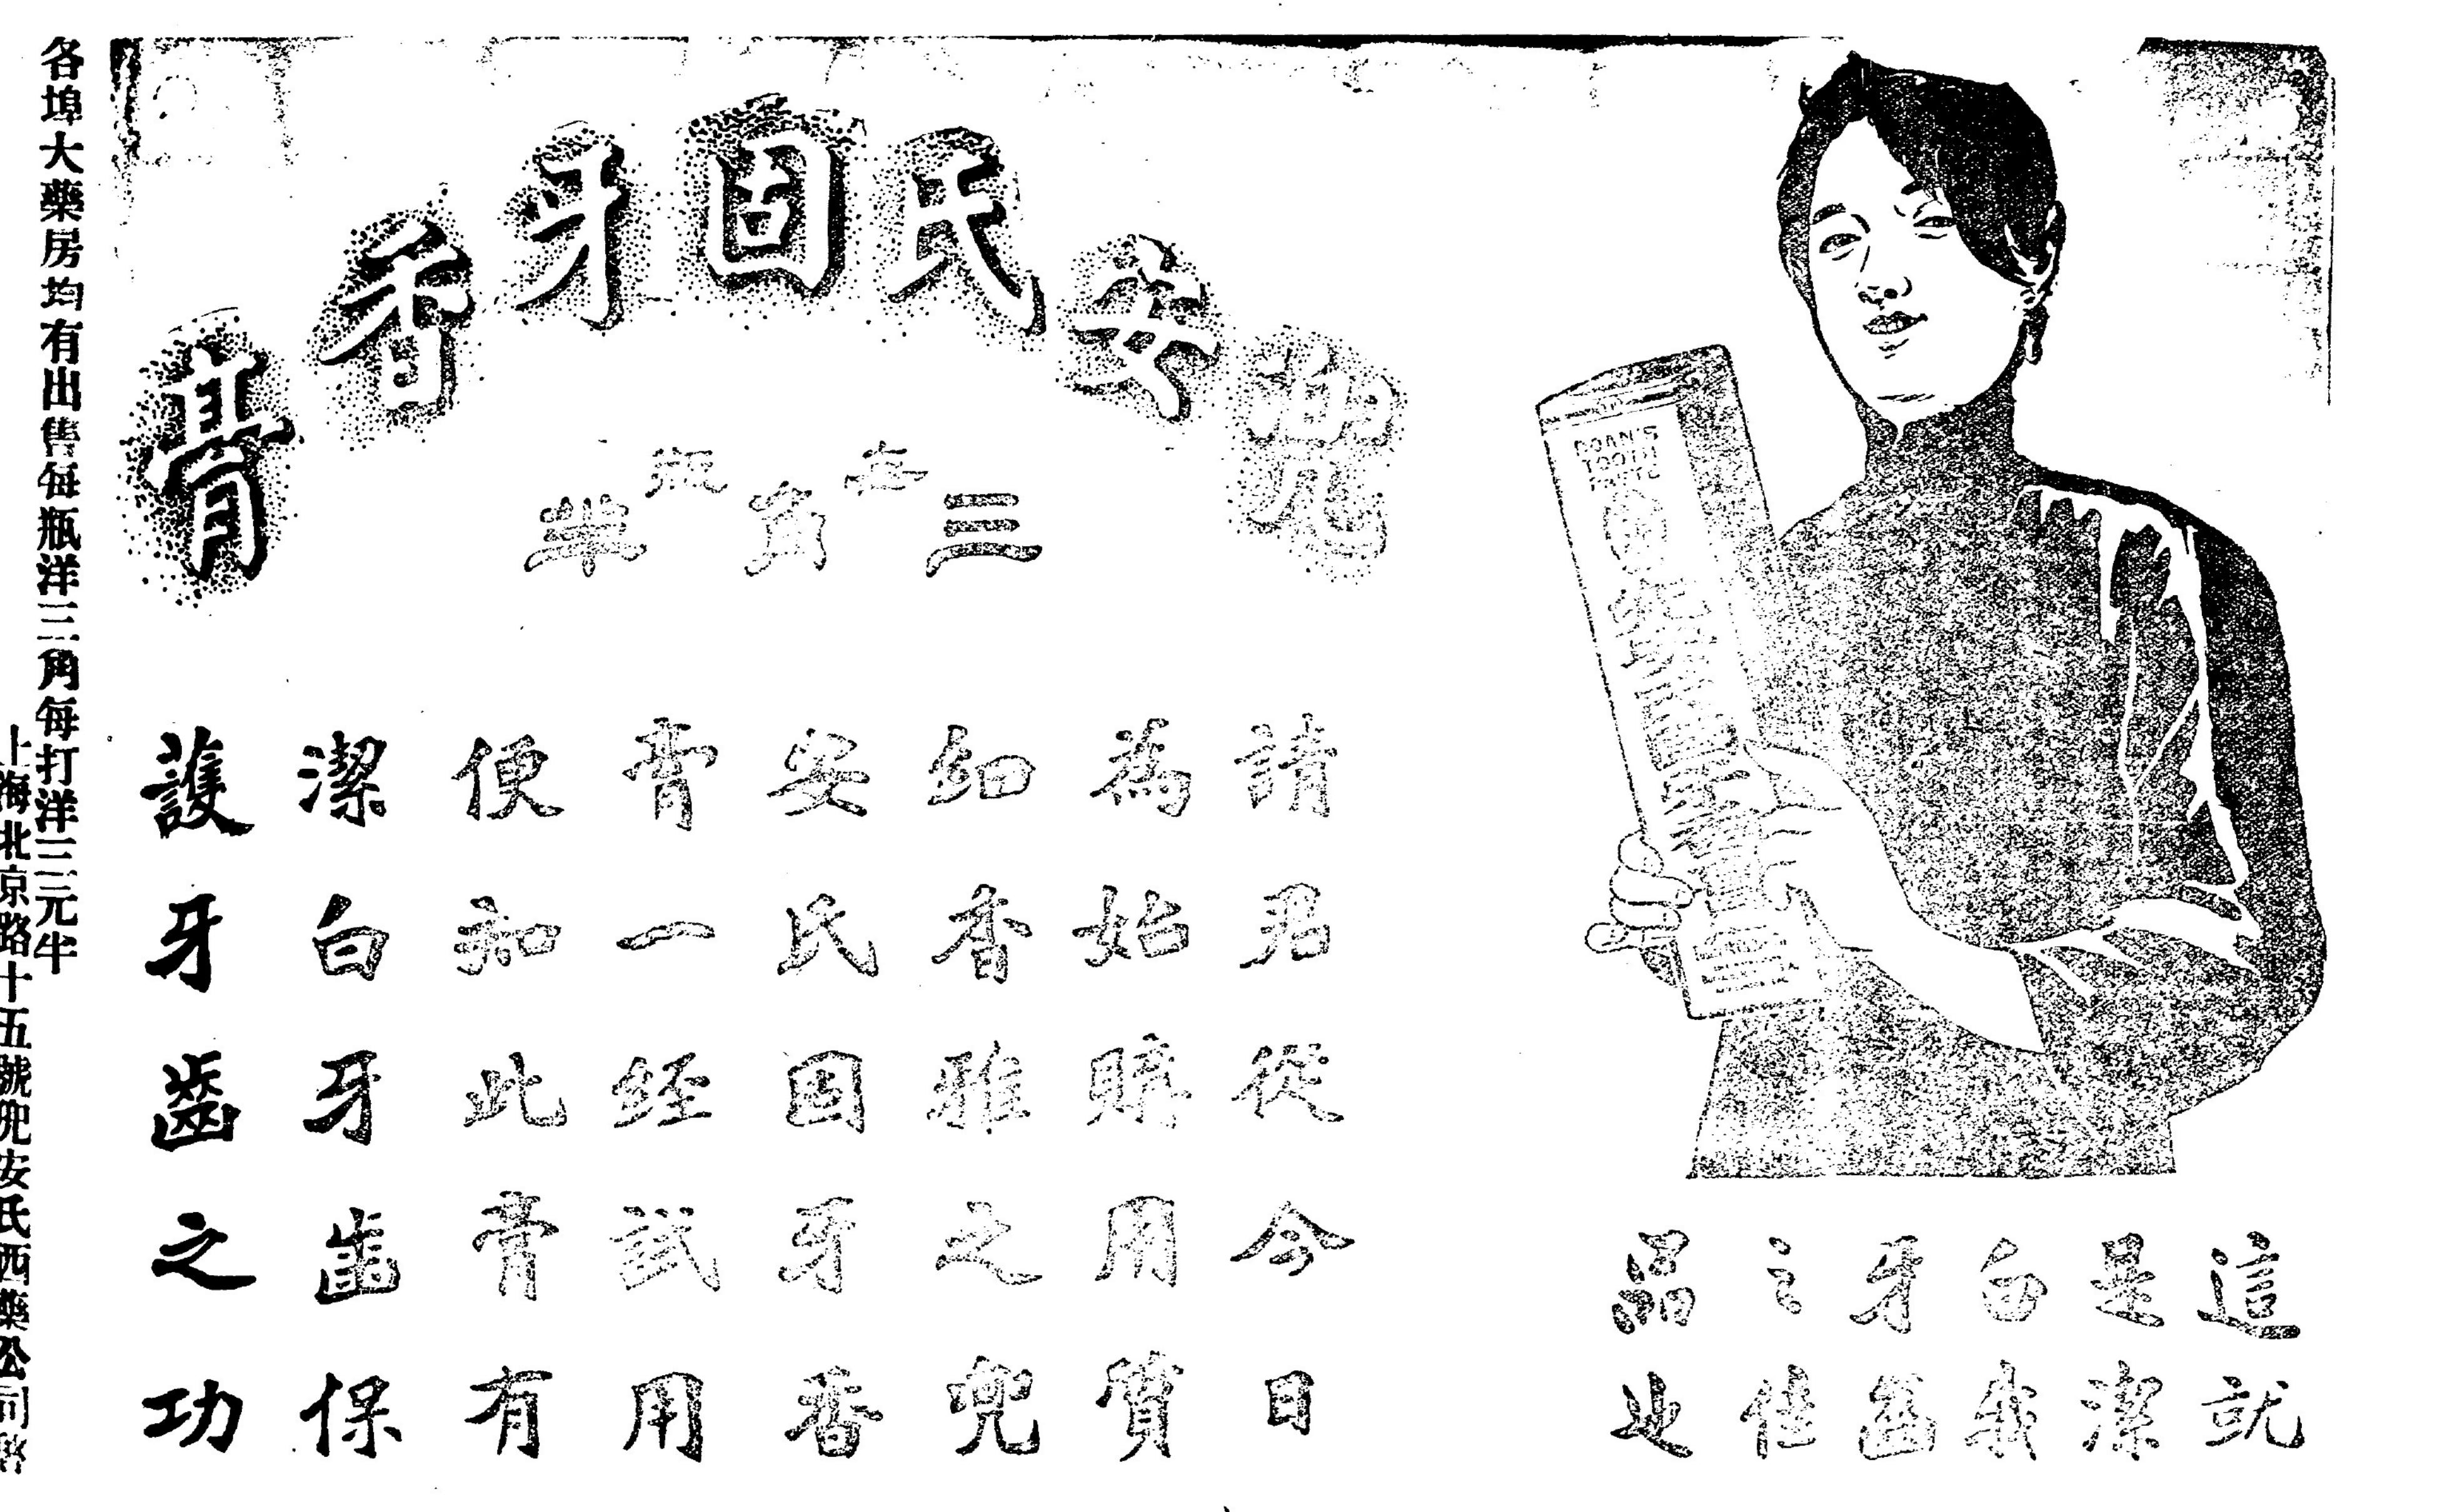 兜安氏固牙香膏
每瓶
三角半
DOAN'S
TOOTH
PASTE
這就
是潔
白我
牙齒
之佳
品也
請君從今日
為始購用質
細香雅之兜
安氏固牙香
膏一經試用
便知此膏有
潔白牙齒保
護牙齒之功
各埠大藥房均有出售每瓶洋三角每打洋三元半
上海北京路十五號兜安氏西藥公司啓